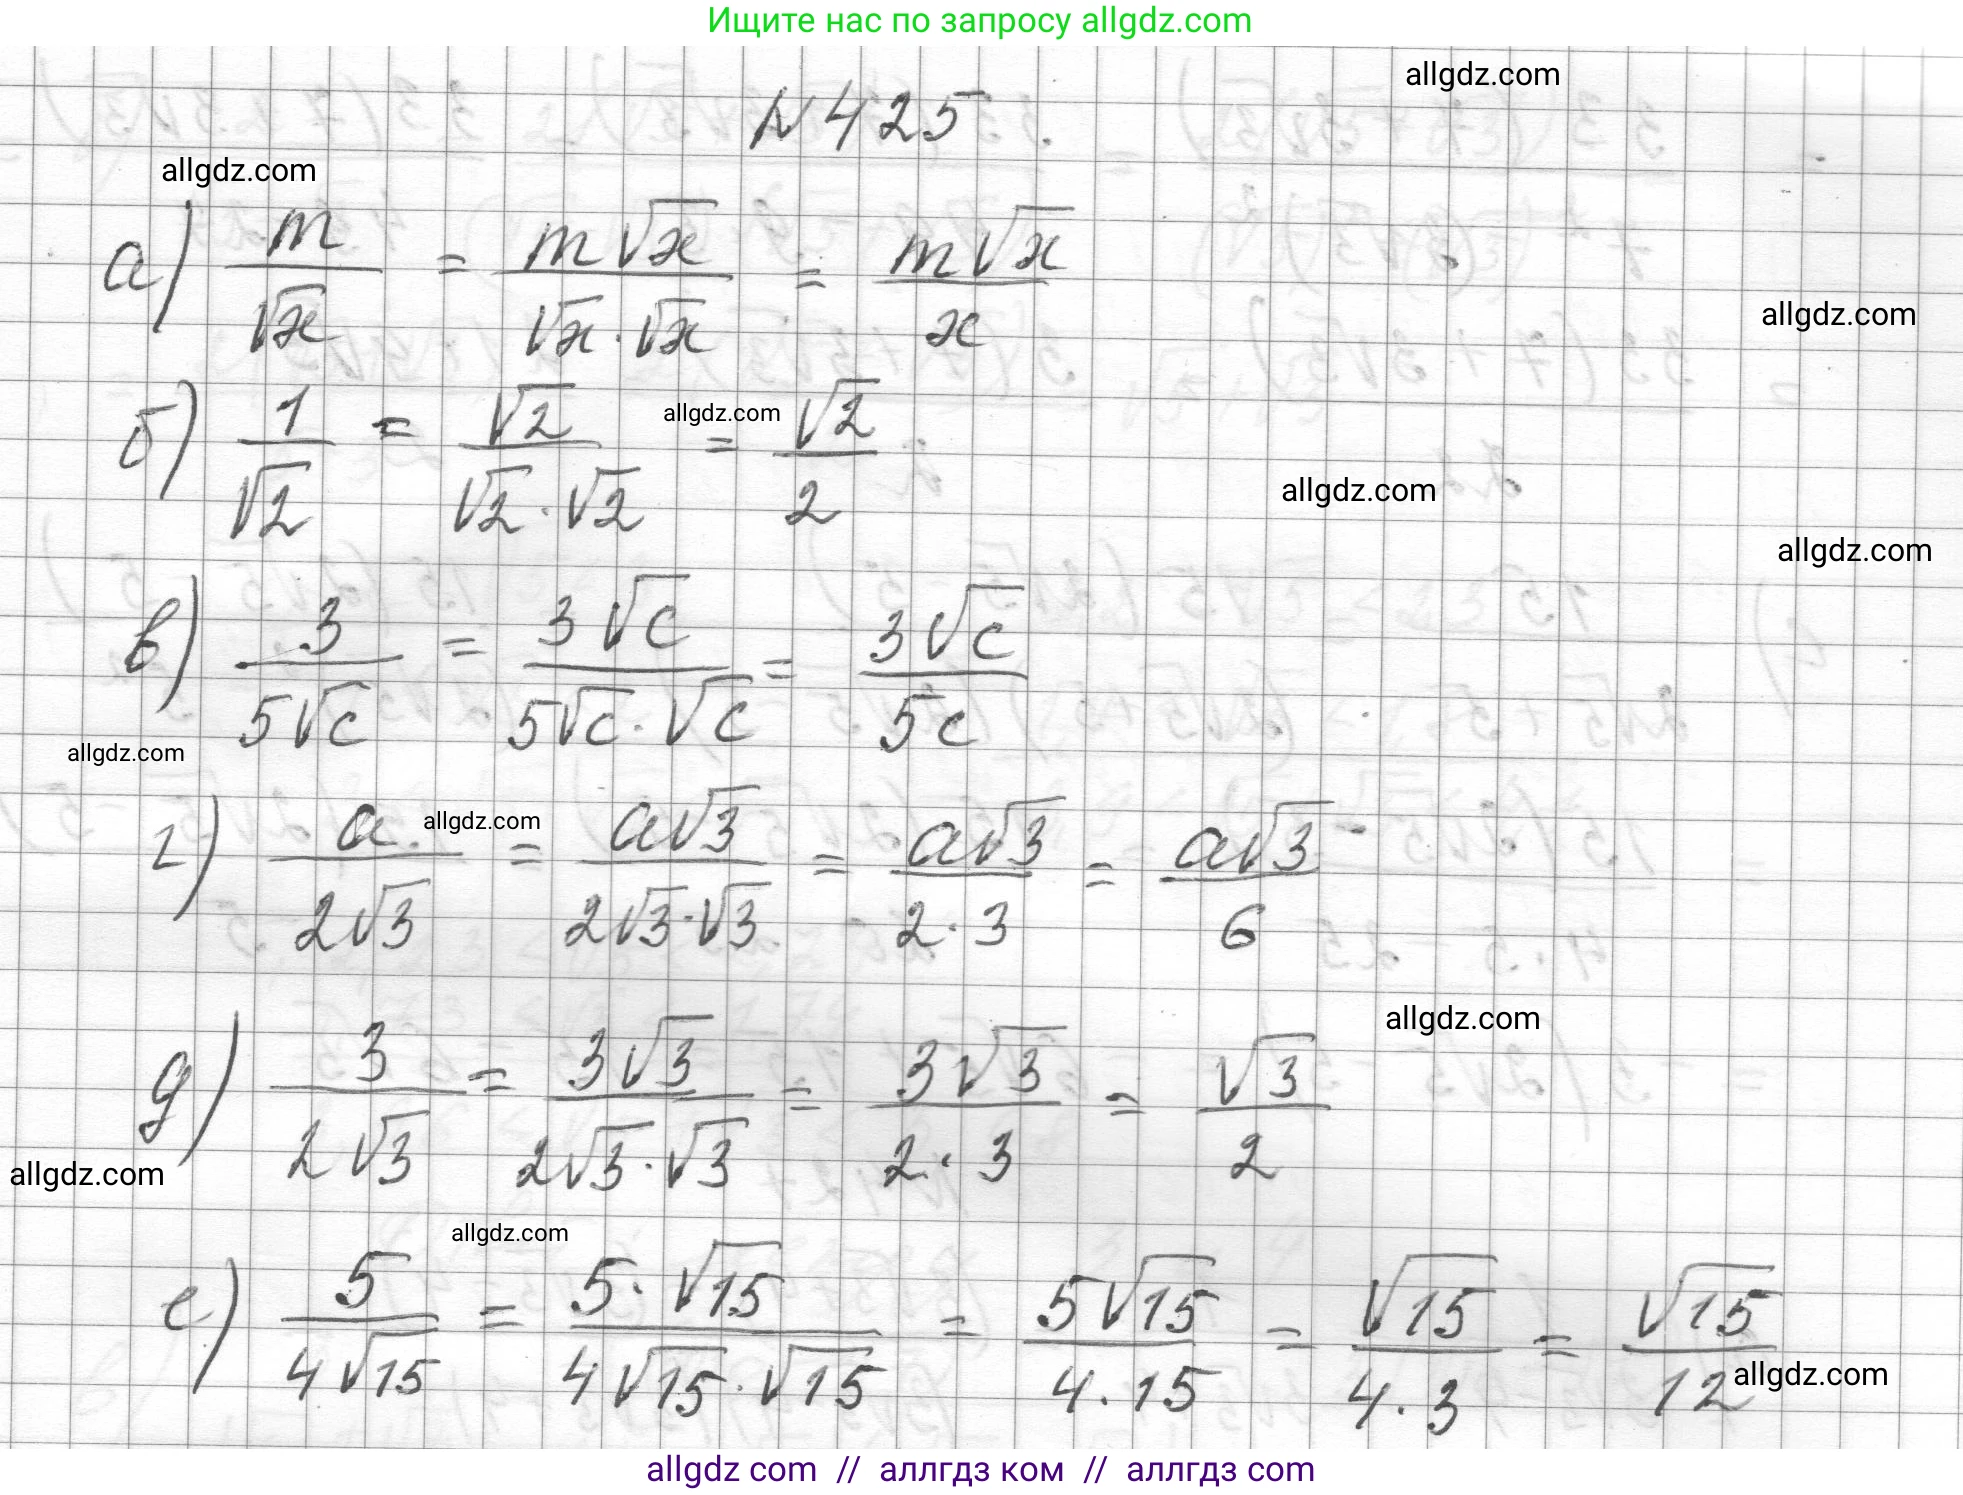 Ищите нас по запросу allgdz.com
allgdz.com
N 425.
allgdz.com
а) m/√x = m√x/(√x · √x) = m√x/x
allgdz.com
б) 1/√2 = √2/(√2 · √2) = √2/2
allgdz.com
allgdz.com
allgdz.com
в) 3/(5√c) = 3√c/(5√c · √c) = 3√c/(5c)
allgdz.com
г) a/(2√3) = a√3/(2√3 · √3) = a√3/(2 · 3) = a√3/6
allgdz.com
allgdz.com
д) 3/(2√3) = 3√3/(2√3 · √3) = 3√3/(2 · 3) = √3/2
allgdz.com
allgdz.com
е) 5/(4√15) = 5 · √15/(4√15 · √15) = 5√15/(4 · 15) = √15/(4 · 3) = √15/12
allgdz.com
allgdz com // аллгдз ком // аллгдз com